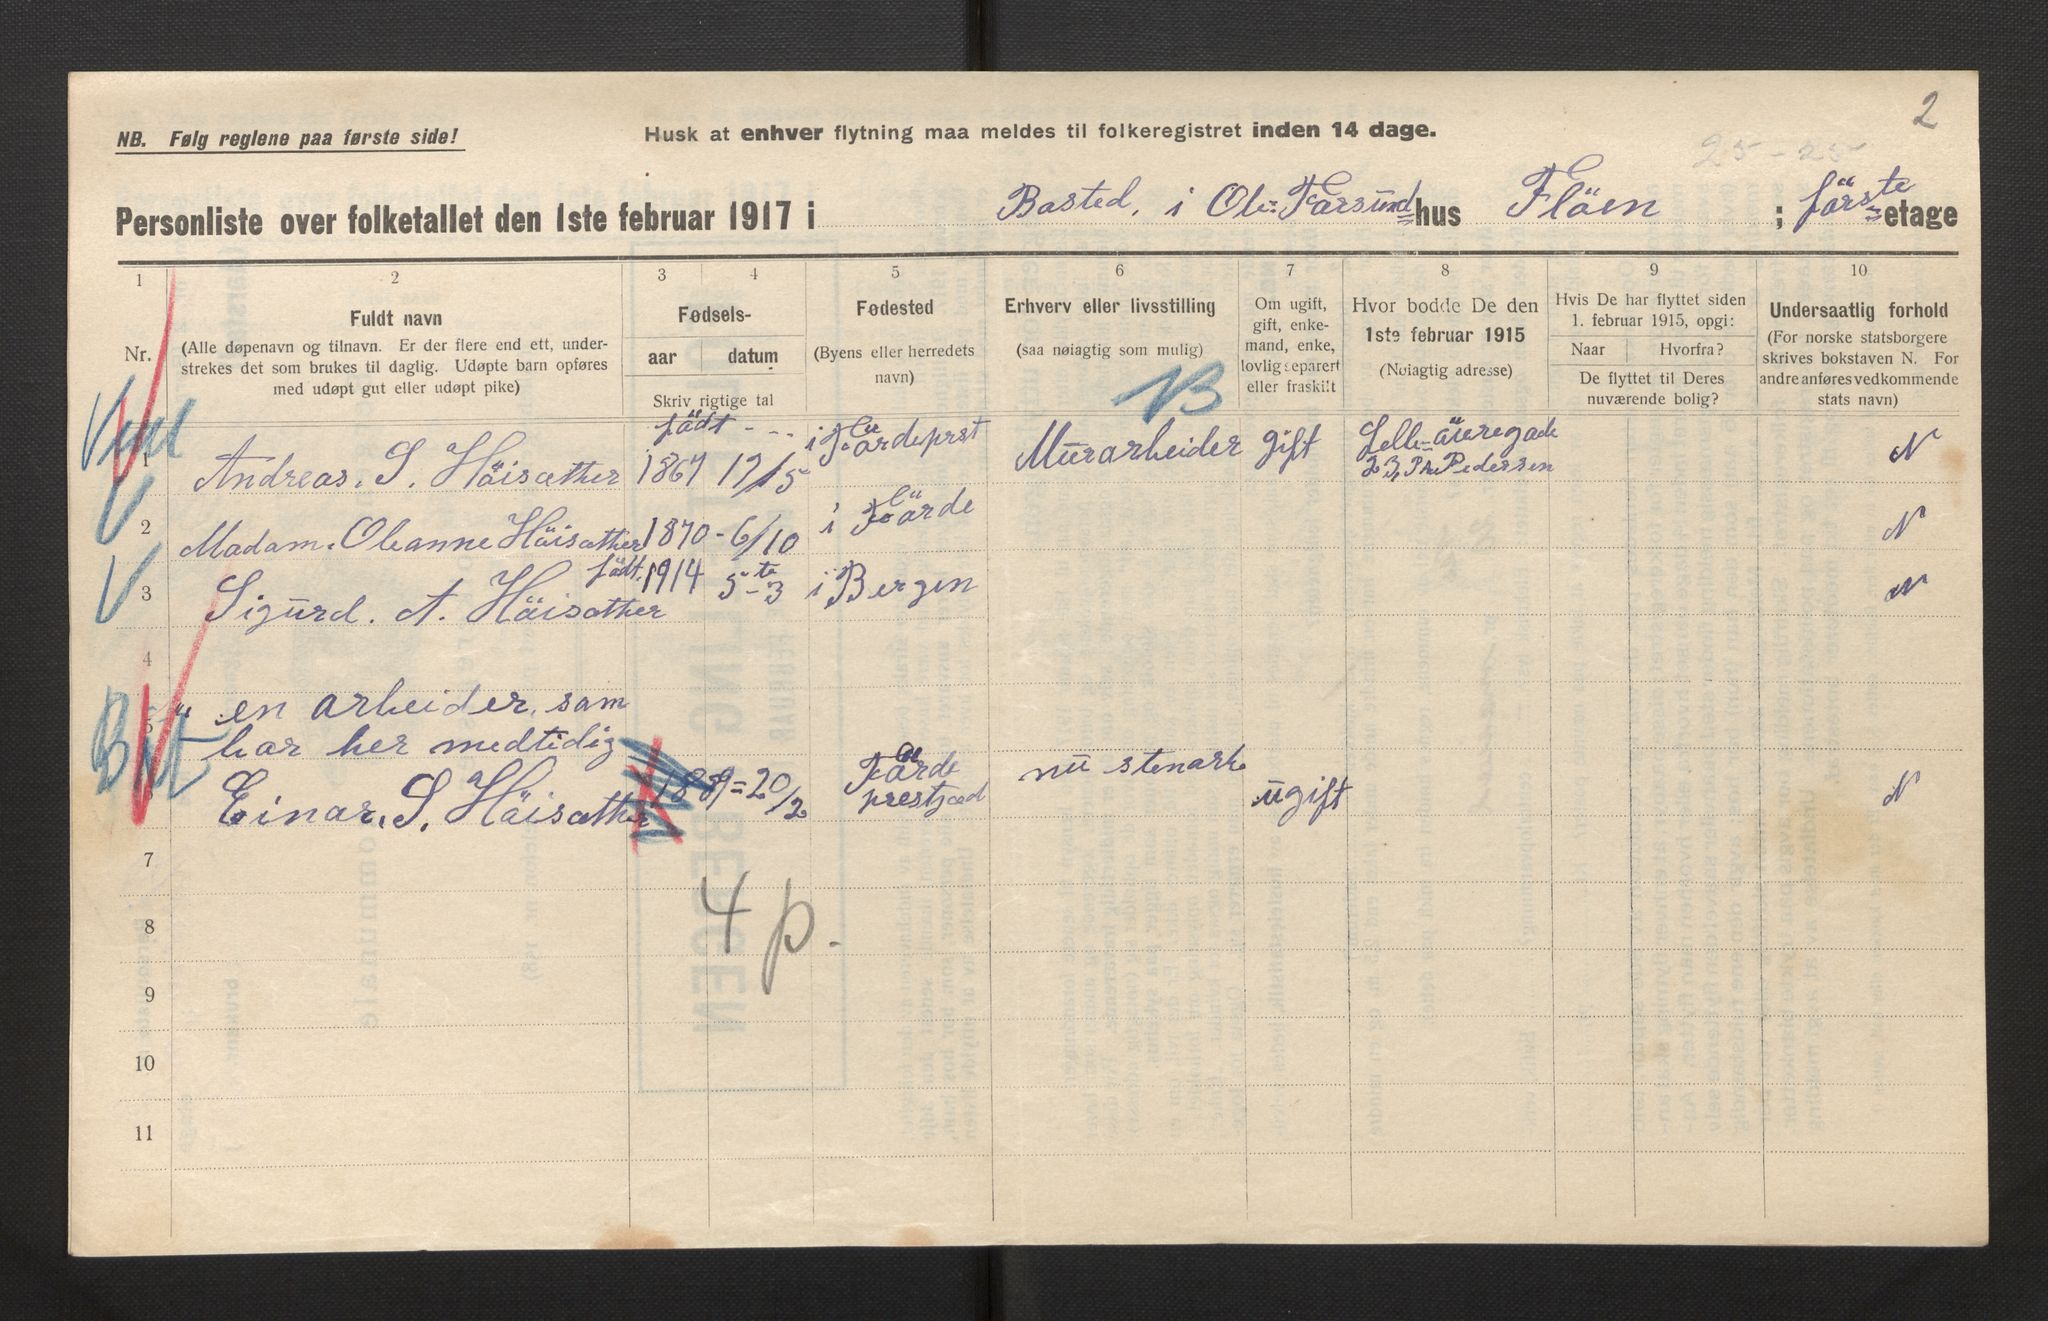 2
NB. Følg reglene paa første side!
Husk at enhver flytning maa meldes til folkeregistret inden 14 dage.
25-25
Personliste over folketallet den 1ste februar 1917 i Bosted, i Ole Farsund hus Fløen ; første etage
1 2 3 4 5 6 7 8 9 10
Nr.
Fuldt navn
(Alle døpenavn og tilnavn. Er der flere end ett, under-
strekes det som brukes til daglig. Udøpte barn opføres
med udøpt gut eller udøpt pike)
Fødsels-
aar datum
Skriv rigtige tal
Fødested
(Byens eller herredets
navn)
Erhverv eller livsstilling
(saa nøiagtig som mulig)
Om ugift,
gift, enke-
mand, enke,
lovlig separert
eller fraskilt
Hvor bodde De den
1ste februar 1915
(Nøiagtig adresse)
Hvis De har flyttet siden
1. februar 1915, opgi:
Naar Hvorfra?
De flyttet til Deres
nuværende bolig?
Undersaatlig forhold
(For norske statsborgere
skrives bokstaven N. For
andre anføres vedkommende
stats navn)
B
født
1 Andreas. S. Höisæther 1867 17/5 i Förde prst Mürarbeider gift
23, Pedersen N
2 Madam. Oleanne Höisæther 1870 - 6/10 i Förde N
3 Sigürd. A. Höisæther født 1914 5te-3 i Bergen N
4
5 " en arbeider, som
bor her medtidig
Einar. S. Höisæther 1889=20/2 Förde prestjæd nü stenarb ügift N
7
4 p.
8
9
10
11